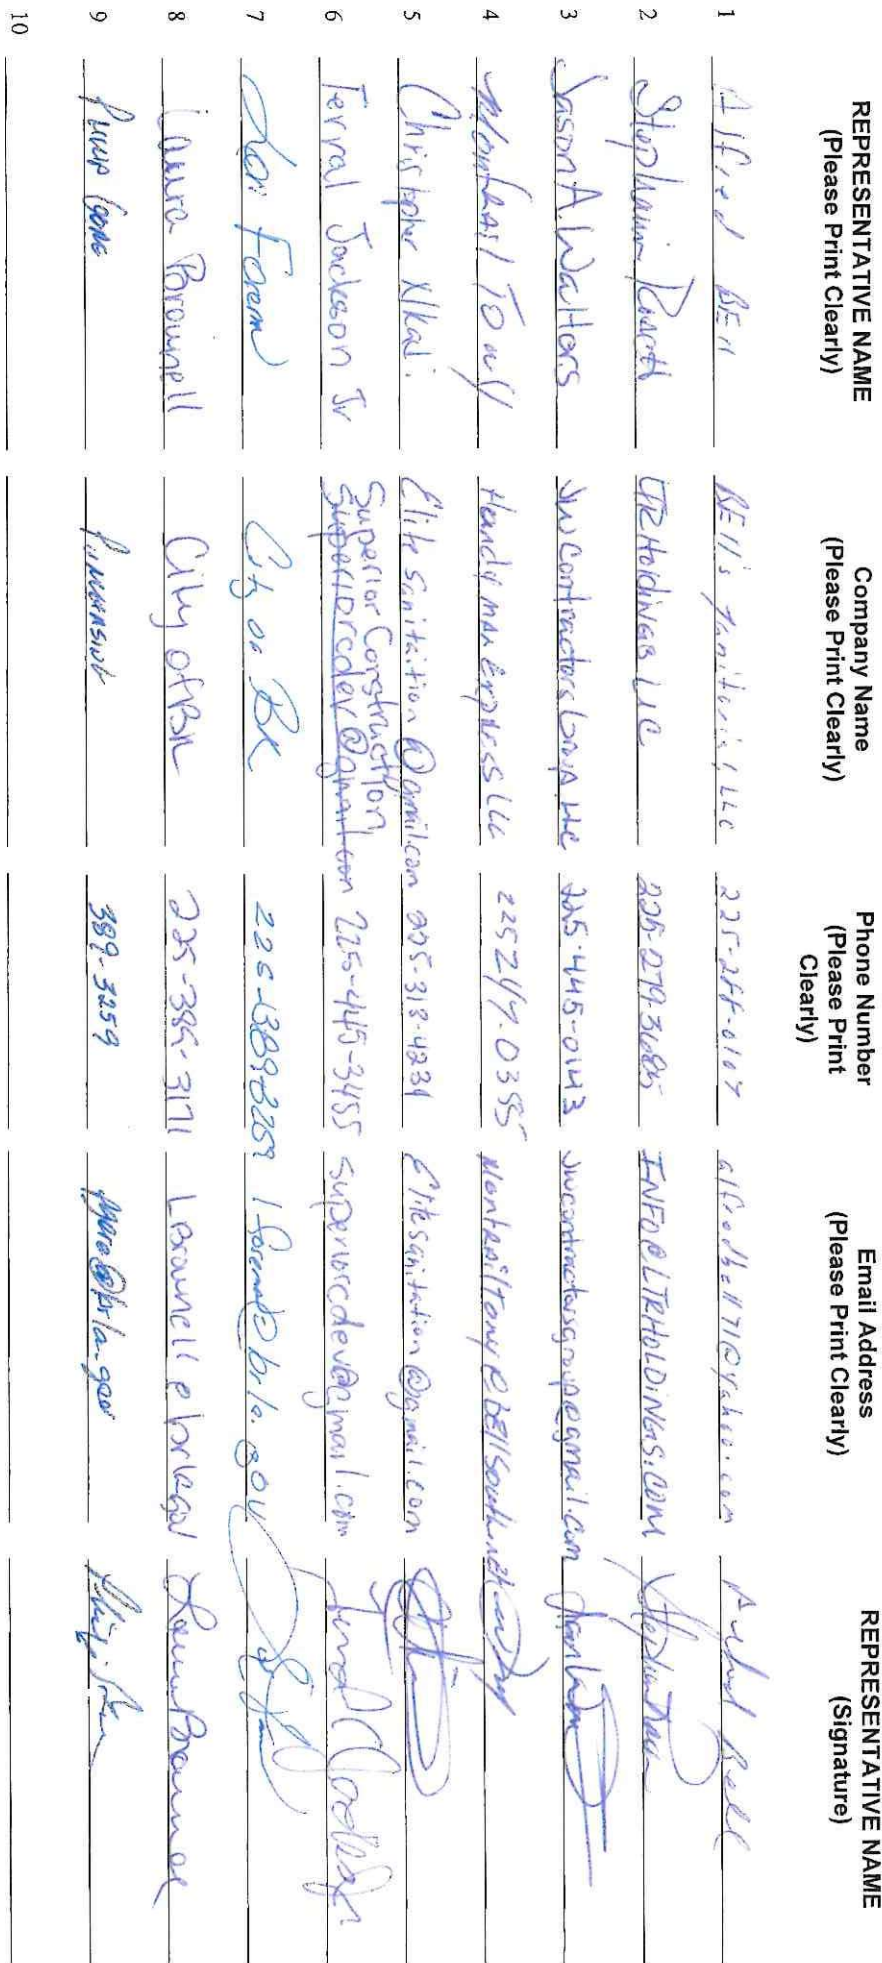 REPRESENTATIVE NAME (Please Print Clearly) Company Name (Please Print Clearly) Phone Number (Please Print Clearly) Email Address (Please Print Clearly) REPRESENTATIVE NAME (Signature)
1 Alfred BEll BEll's Janitorial, LLC 225-288-0107 alfredbell71@yahoo.com Alfred Bell
2 Stephanie LTR Holdings LLC 225-279-3685 INFO@LTRHOLDINGS.COM
3 Jason A. Walters JW Contractors Group, LLC 225-445-0143 jwcontractorsgroup@gmail.com
4 Montrail Tony Handyman Express LLC 225 247-0355 MontrailTony@BEllSouth.net
5 Christopher Nkai. Elite Sanitaition @gmail.com 225-318-4234 Elitesanitation@gmail.com
6 Terral Jackson Jr Superior Construction superiorcdev@gmail.com 225-445-3455 superiorcdev@gmail.com
7 Lori Forem City of BR 225-389-3259 lforeman@brla.gov
8 Laura Brownell City of BR 225-389-3171 LBrownell@brla.gov Laura Brownell
9 389-3259
10